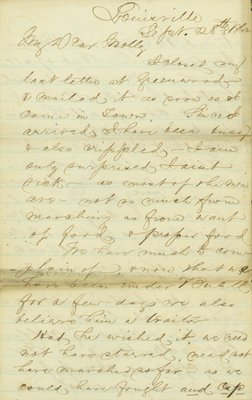 Louisville
Sept. 28th 1862
My Dear Molly
I closed my
last letter at Greenwood
& mailed it as soon as I
came in Town. Since I
arrived I have been busy
& also crippled - I am
only surprised I aint
sick - as most of the men
are - not so much from
marching as from want
of food & proper food
We have much to com
plain of & now that we
have been under
for a few days we also
believe him a traitor
Had he wished it, we need
not have starved, need not
have marched so far - as we
could have fought and Cap